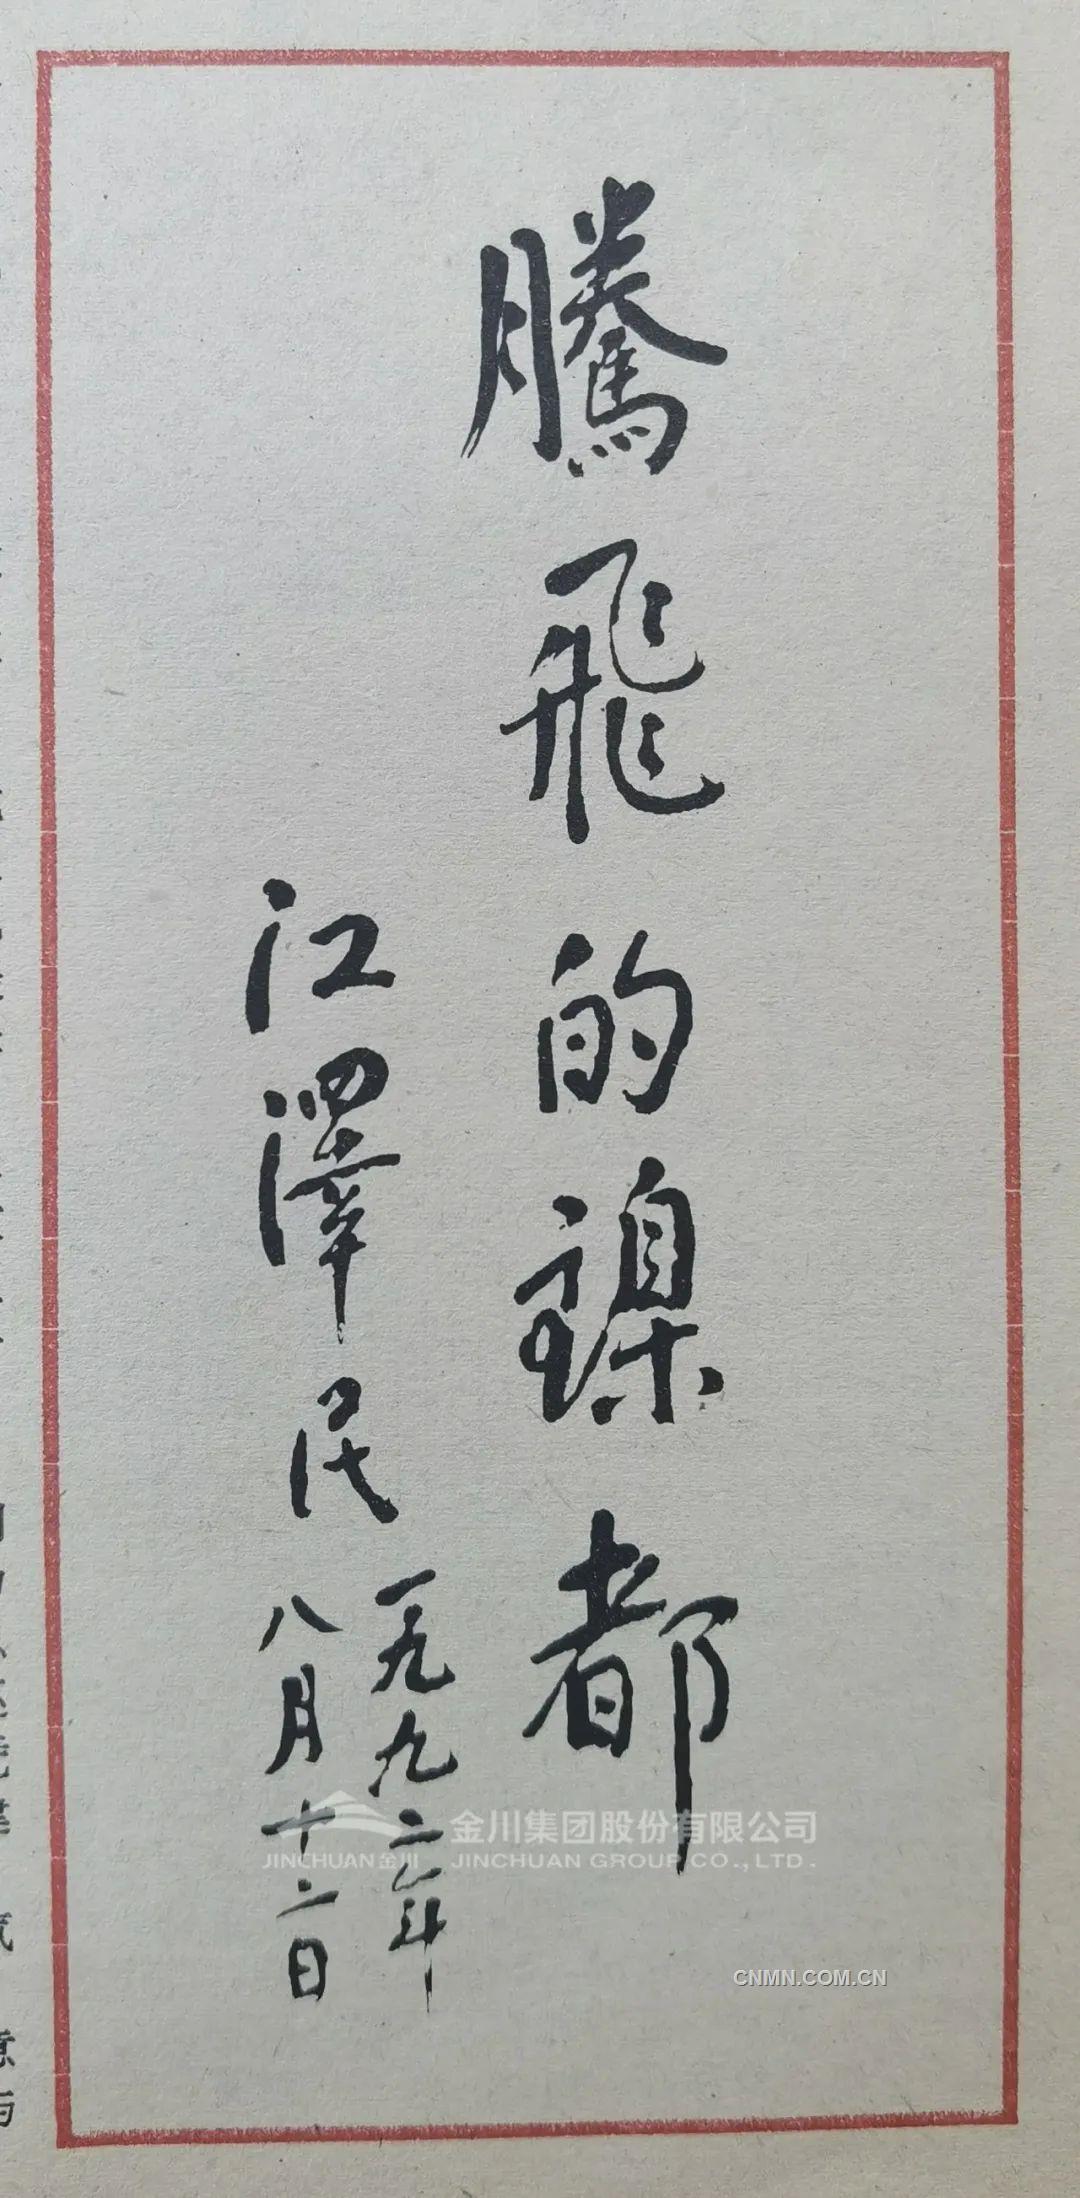 騰飛的鎳都
江澤民
一九九二年
八月十二日
金川集团股份有限公司
JINCHUAN金川 JINCHUAN GROUP CO.,LTD.
CNMN.COM.CN